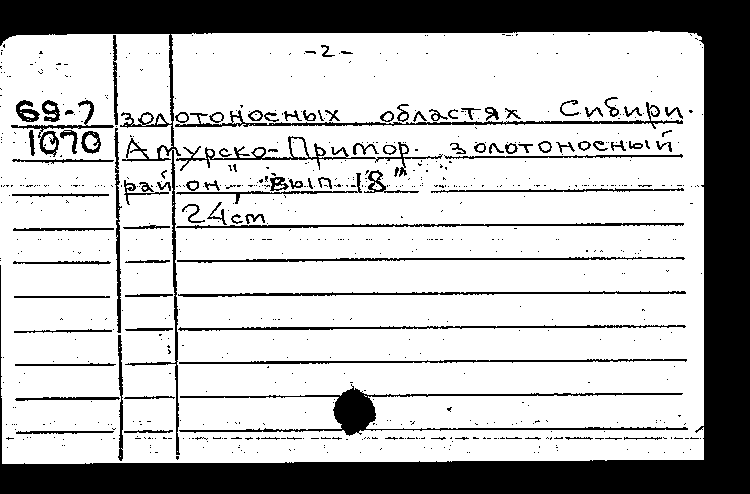 -2-
69-7 золотоносных областях Сибири.
1070 Амурско-Примор. золотоносный
район" "вып. 18"
24 cm